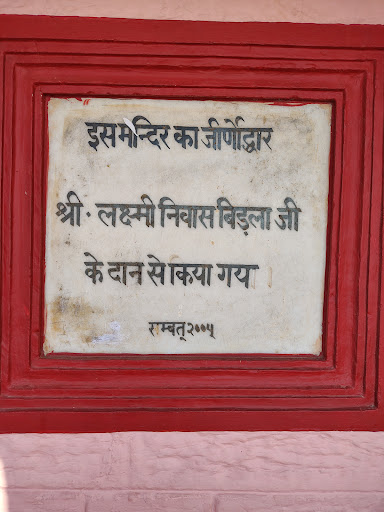 इस मन्दिर का जीर्णोद्धार
श्री॰ लक्ष्मी निवास बिड़ला जी
के दान से किया गय
सम्बत् २००५